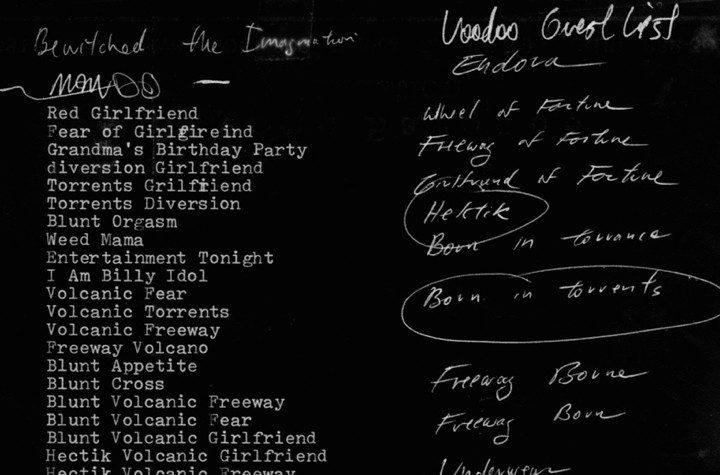 Bewitched the Imagination
Red Girlfriend
Fear of Girlgireind
Grandma's Birthday Party
diversion Girlfriend
Torrents Grilfriend
Torrents Diversion
Blunt Orgasm
Weed Mama
Entertainment Tonight
I Am Billy Idol
Volcanic Fear
Volcanic Torrents
Volcanic Freeway
Freeway Volcano
Blunt Appetite
Blunt Cross
Blunt Volcanic Freeway
Blunt Volcanic Fear
Blunt Volcanic Girlfriend
Hectik Volcanic Girlfriend
Hectik Volcanic Freeway
Voodoo Guest List
Endora
Wheel of Fortune
Freeway of Fortune
Girlfriend of Fortune
Hektik
Born in torrance
Born in torrents
Freeway Bourne
Freeway Born
Underwear